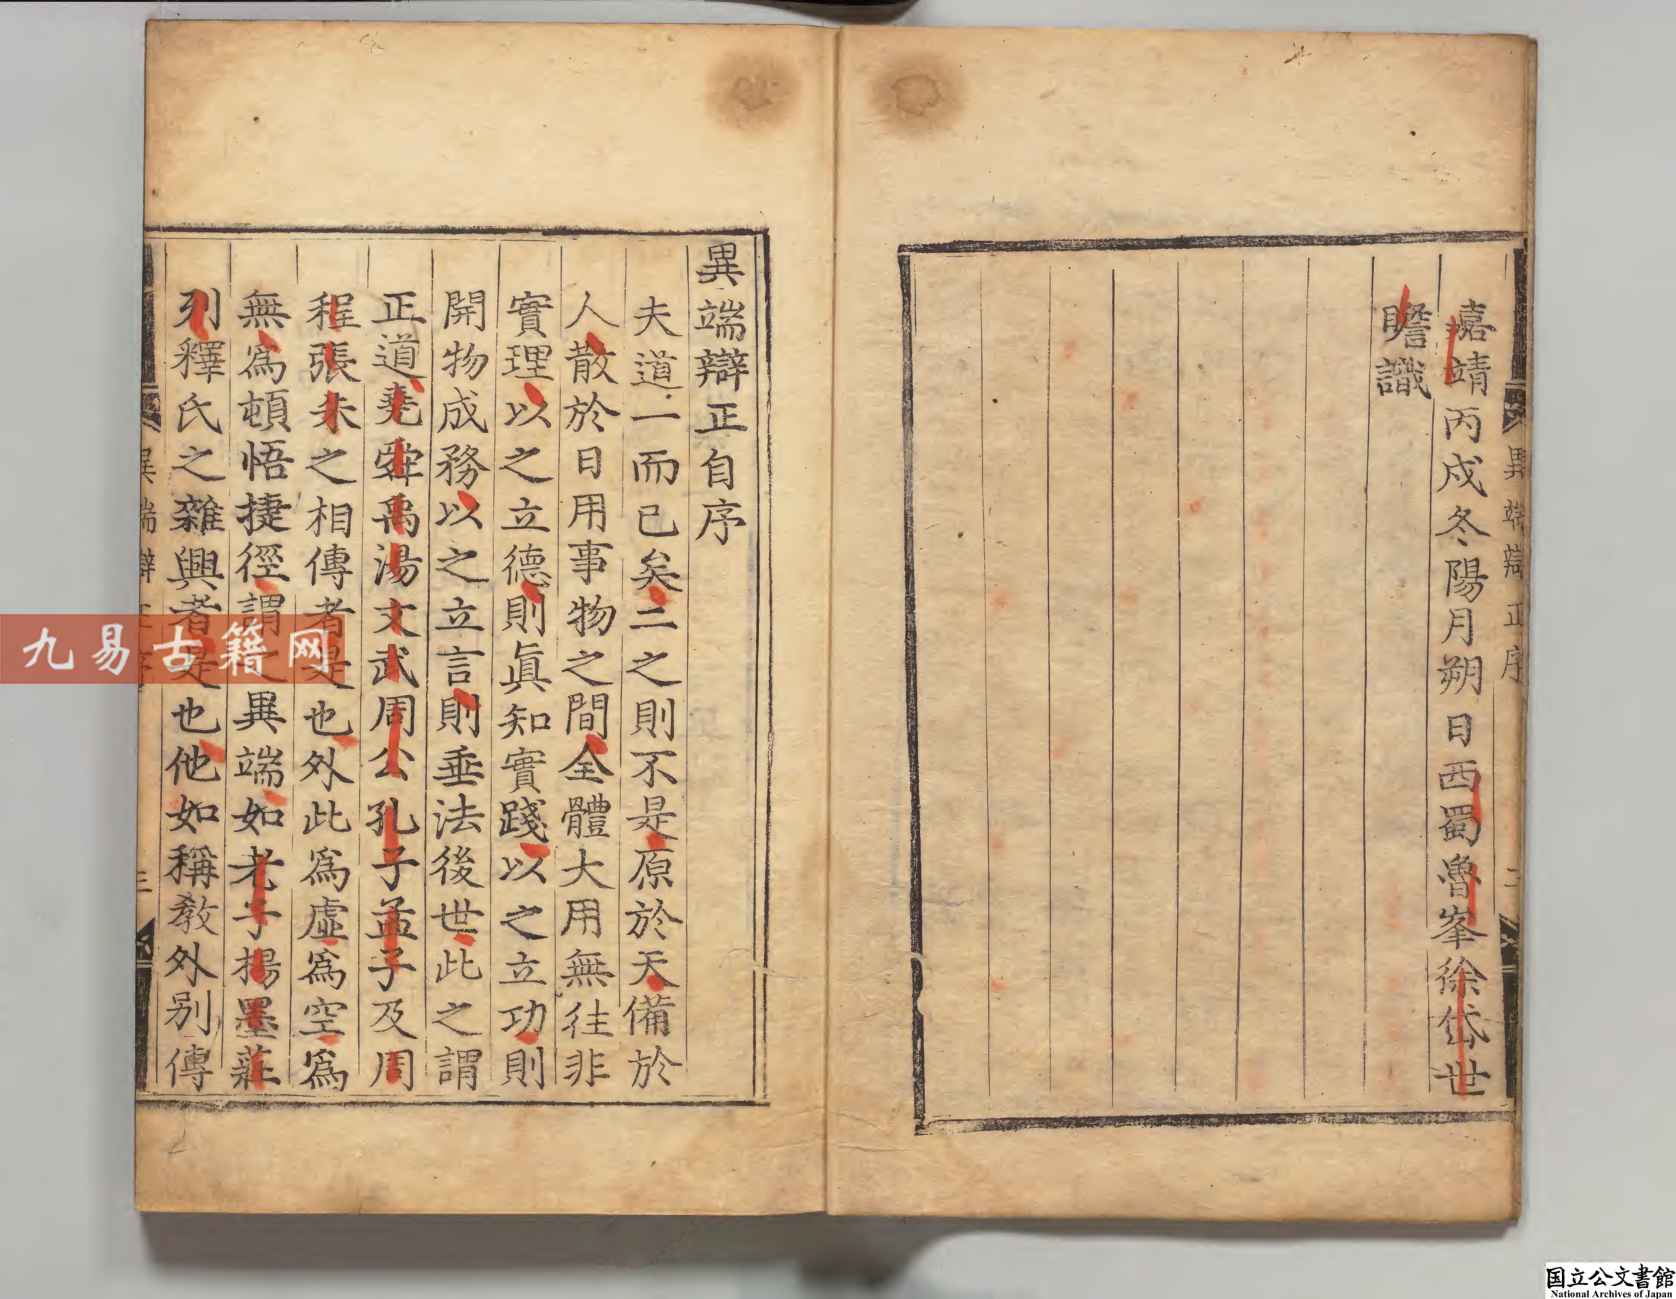 嘉靖丙戍冬陽月朔日西蜀魯峯徐岱世
瞻識
異端辯正序
二
異端辯正自序
夫道一而已矣二之則不是原於天備於
人散於日用事物之間全體大用無往非
實理以之立德則眞知實踐以之立功則
開物成務以之立言則垂法後世此之謂
正道堯舜禹湯文武周公孔子孟子及周
程張朱之相傳者是也外此爲虛爲空爲
無爲頓悟捷徑謂之異端如老子揚墨莊
列釋氏之雜興者是也他如稱教外别傳
異端辯正序
三
九易古籍网
国立公文書館
National Archives of Japan